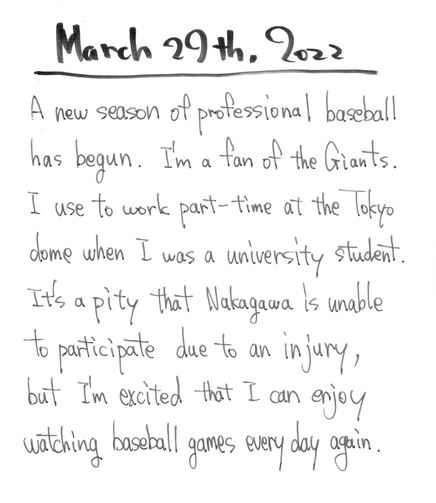 March 29th, 2022
A new season of professional baseball
has begun. I'm a fan of the Giants.
I use to work part-time at the Tokyo
dome when I was a university student.
It's a pity that Nakagawa is unable
to participate due to an injury,
but I'm excited that I can enjoy
watching baseball games every day again.